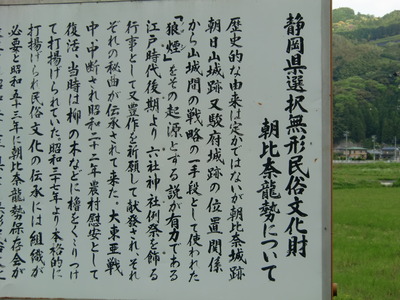 静岡県選択無形民俗文化財
朝比奈龍勢について
歴史的な由来は定かではないが朝比奈城跡
朝日山城跡又駿府城跡の位置関係
から山城間の戦略の一手段として使われた
「狼煙」をその起源とする説が有力である
江戸時代後期より六社神社例祭を飾る
行事として又豊作を祈願して献発されそれ
ぞれの秘曲が伝承されて来た、大東亜戦
中、中断され昭和二十二年農村慰安として
復活、当時は柳の木などに櫓をくくりつけ
て打揚げられていた。昭和三十七年より本格的に
打揚げられ民俗文化の伝承には組織が
必要と昭和五十三年に朝比奈龍勢保存会が